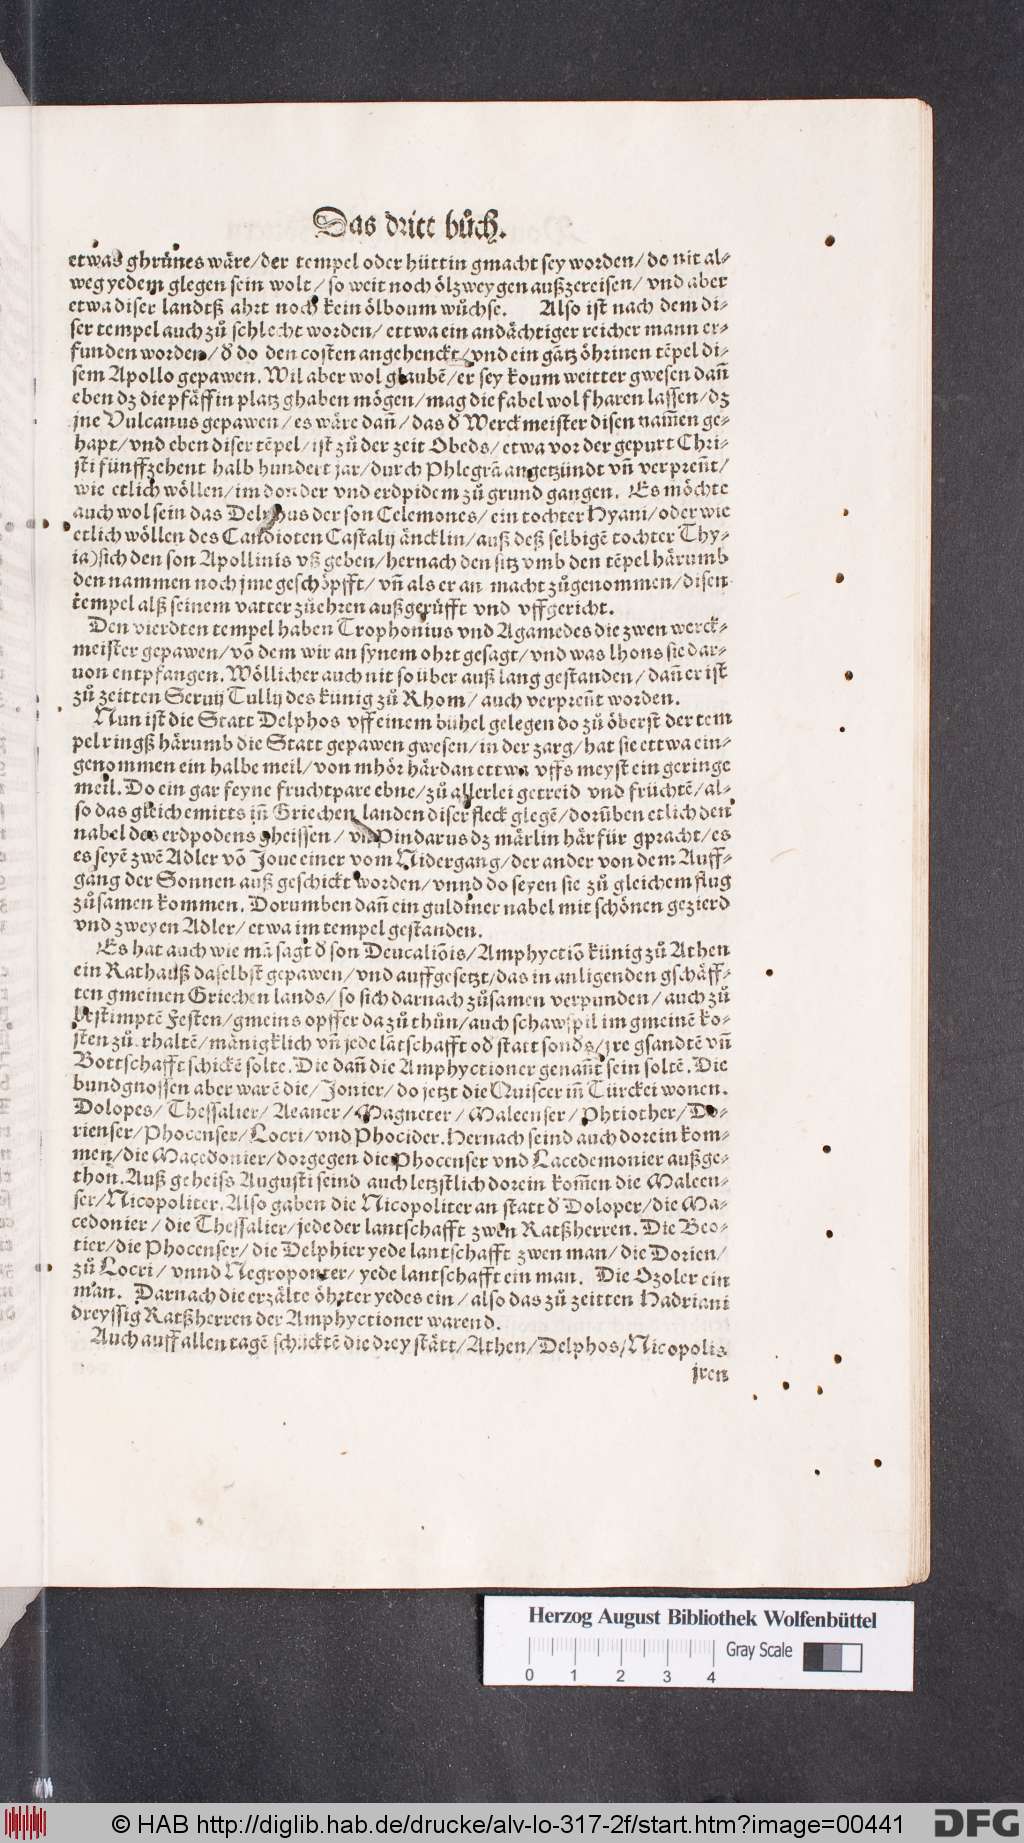 Das dritt bůch.
etwas ghrünes wäre/der tempel oder hüttin gmacht sey worden/do nit al-
weg yedem glegen sein wolt/so weit noch ölzweygen außzereisen/vnd aber
etwa diser landtß ahrt noch kein ölboum wůchse. Also ist nach dem di-
ser tempel auch zů schlecht worden/ettwa ein andächtiger reicher mann er-
funden worden/ď do den costen angehenckt/vnd ein gātz öhrinen tēpel di-
sem Apollo gepawen. Wil aber wol glaubē/er sey koum weitter gwesen dañ
eben dz die pfäff in platz ghaben mögen/mag die fabel wol faren lassen/dz
jne Vulcanus gepawen/es wäre dañ/das ď Werckmeister disen nam̄en ge-
hapt/vnd eben diser tēpel/ist zů der zeit Obeds/etwa vor der gepurt Chri-
sti fünffzehent halb hundert jar/durch Phlegrā angetzündt vñ verpreñt/
wie etlich wöllen/im donder vnd erdpidem zů grund gangen. Es möchte
auch wol sein das Delphus der son Celemones/ein tochter Hyani/oder wie
etlich wöllen des Candioten Castalij äncklin/auß deß selbigē tochter Thy-
ia) sich den son Apollinis vß geben/hernach den sitz vmb den tēpel härumb
den nammen noch jme geschöpfft/vñ als er an macht zůgenommen/disen
tempel alß seinem vatter zů ehren außgerüfft vnd vffgericht.
Den vierdten tempel haben Trophonius vnd Agamedes die zwen werck-
meister gepawen/vō dem wir an synem ohrt gesagt/vnd was lhons sie dar-
uon entpfangen. Wöllicher auch nit so über auß lang gestanden/dañ er ist
zů zeitten Seruij Tullij des künig zů Rhom/auch verpreñt worden.
Nun ist die Statt Delphos vff einem bühel gelegen do zů öberst der tem
pel ringß härumb die Statt gepawen gwesen/in der zarg/hat sie ettwa ein-
genommen ein halbe meil/von mhör härdan ettwa vffs meyst ein geringe
meil. Do ein gar feyne fruchtpare ebne/zů allerlei getreid vnd früchtē/al-
so das gleich emitts iñ Griechen landen diser fleck glegē/dorüben etlich den
nabel des erdpodens gheissen/vñ Pindarus dz märlin här für gpracht/es
es seyē zwē Adler vō Joue einer vom Nidergang/der ander von dem Auff-
gang der Sonnen auß geschickt worden/vnnd do seyen sie zů gleichem flug
zůsamen kommen. Dorumben dañ ein guldiner nabel mit schönen gezierd
vnd zweyen Adler/etwa im tempel gestanden.
Es hat auch wie mā sagt ď son Deucaliōis/Amphyctiō künig zů Athen
ein Rathauß daselbst gepawen/vnd auffgesetzt/das in anligenden gschäff-
ten gmeinen Griechen lands/so sich darnach zůsamen verpunden/auch zů
bestimptē Festen/gmeins opffer da zů thůn/auch schawspil im gmeinē ko-
sten zů erhaltē/mänigklich vñ jede lātschafft oď statt sonds/jre gsandtē vñ
Bottschafft schickē solte. Die dañ die Amphyctioner genañt sein soltē. Die
bundgnossen aber warē die/Jonier/do jetzt die Quiscer iñ Türckei wonen.
Dolopes/Thessalier/Aeaner/Magneter/Maleenser/Phtiother/Do-
rienser/Phocenser/Locri/vnd Phocider. Hernach seind auch dorein kom-
men/die Macedonier/dorgegen die Phocenser vnd Lacedemonier außge-
thon. Auß geheiss Augusti seind auch letzstlich dorein kom̄en die Maleen-
ser/Nicopoliter. Also gaben die Nicopoliter an statt ď Doloper/die Ma-
cedonier/die Thessalier/jede der lantschafft zwen Ratßherren. Die Beo-
tier/die Phocenser/die Delphier yede lantschafft zwen man/die Dorien/
zů Locri/vnnd Negroponter/yede lantschafft ein man. Die Ozoler ein
man. Darnach die erzälte öhrter yedes ein/also das zů zeitten Hadriani
dreyssig Ratßherren der Amphyctioner warend.
Auch auff allen tagē schicktē die drey stätt/Athen/Delphos/Nicopolis
jren
Herzog August Bibliothek Wolfenbüttel
Gray Scale
0 1 2 3 4
© HAB http://diglib.hab.de/drucke/alv-lo-317-2f/start.htm?image=00441
DFG